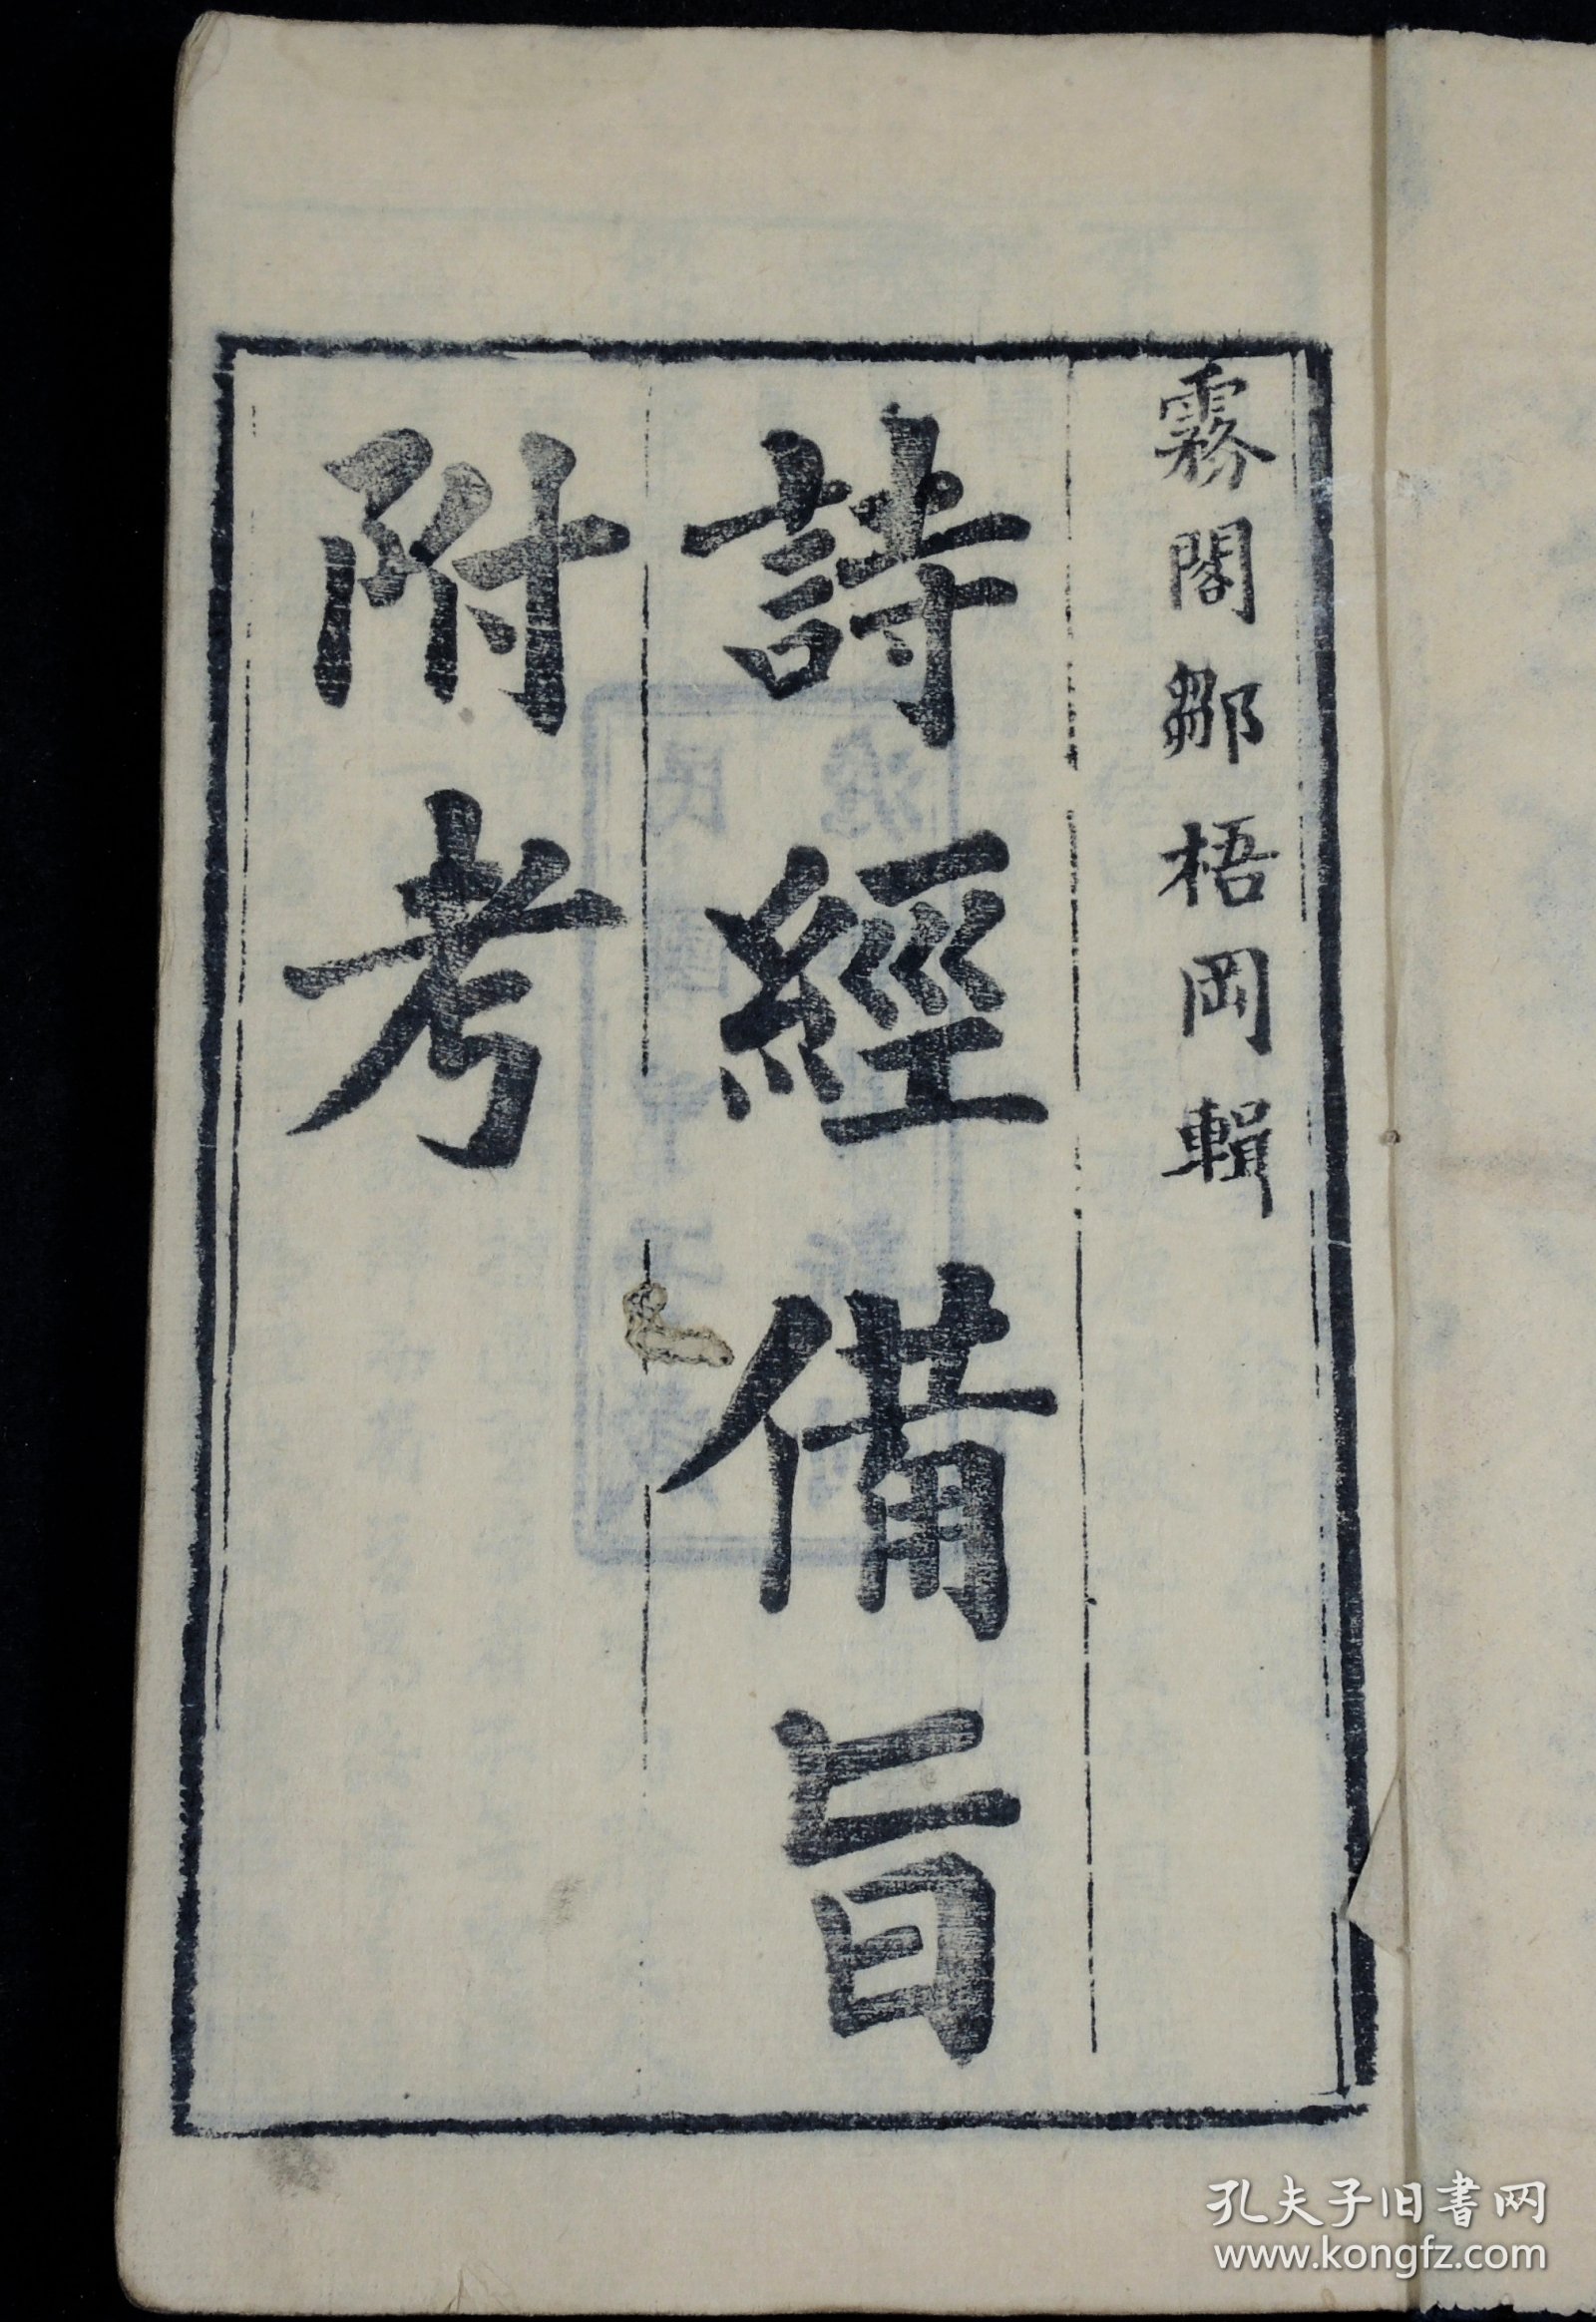 霧閣鄒梧岡輯
詩經備旨
附考
孔夫子旧書网
www.kongfz.com